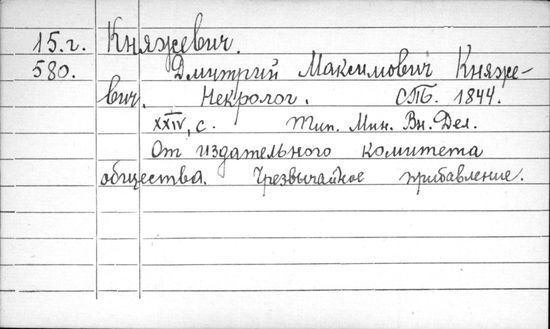 15.г. Княжевич.
580. Дмитрий Максимович Княже-
вич. Некролог. СПб. 1844.
XXIV, с. Тип. Мин. Вн. Дел.
От издательного комитета
общества. Чрезвычайное прибавление.